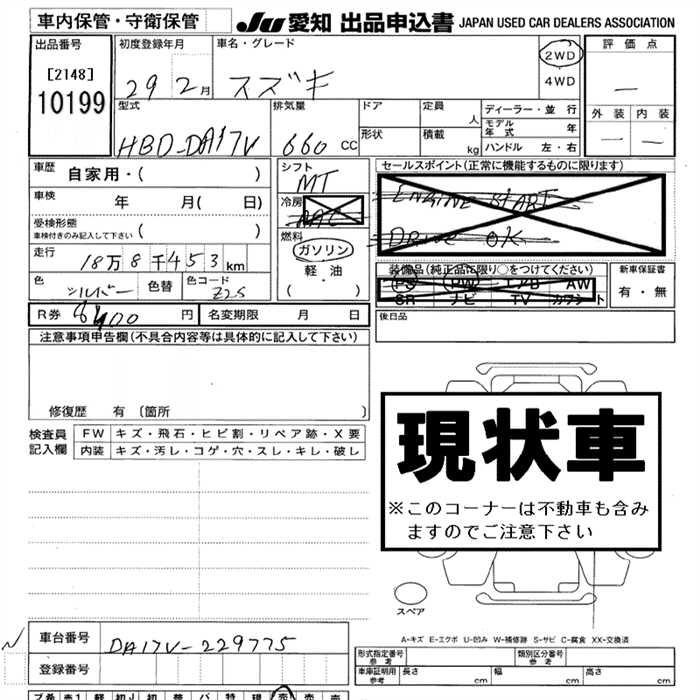 車内保管・守衛保管
JU 愛知 出品申込書 JAPAN USED CAR DEALERS ASSOCIATION
出品番号
[2148]
10199
初度登録年月
29 2月
車名・グレード
スズキ
2WD
4WD
評価点
—
外装 内装
— —
型式
HBD-DA17V
排気量
660 CC
ドア
定員
人
形状
積載
kg
ディーラー・並行
モデル年式 年
ハンドル 左・右
車歴 自家用・( )
車検 年 月( 日)
受検形態
車検付きのみ記入して下さい ( )
走行 18万8千453km
色 シルバー 色替 色コード Z2S
シフト
MT
冷房
AAC
燃料
ガソリン
軽油
( )
セールスポイント(正常に機能するものに限ります)
ENGINE START
DRIVE OK
装備品(純正品に限り○をつけてください)
PS PW エアB AW
SR ナビ TV カワシート
新車保証書
有・無
R券 円 名変期限 月 日
後日品
注意事項申告欄(不具合内容等は具体的に記入して下さい)
修復歴 有 〔箇所 〕
検査員記入欄
FW キズ・飛石・ヒビ割・リペア跡・X要
内装 キズ・汚レ・コゲ・穴・スレ・キレ・破レ
現状車
※このコーナーは不動車も含み
ますのでご注意下さい
スペア
A-キズ E-エクボ U-凹み W-補修跡 S-サビ C-腐食 XX-交換済
N
車台番号 DA17V-229775
登録番号
形式指定番号 参考
類別区分番号 参考
車庫証明用 参考 長さ cm 幅 cm 高さ cm